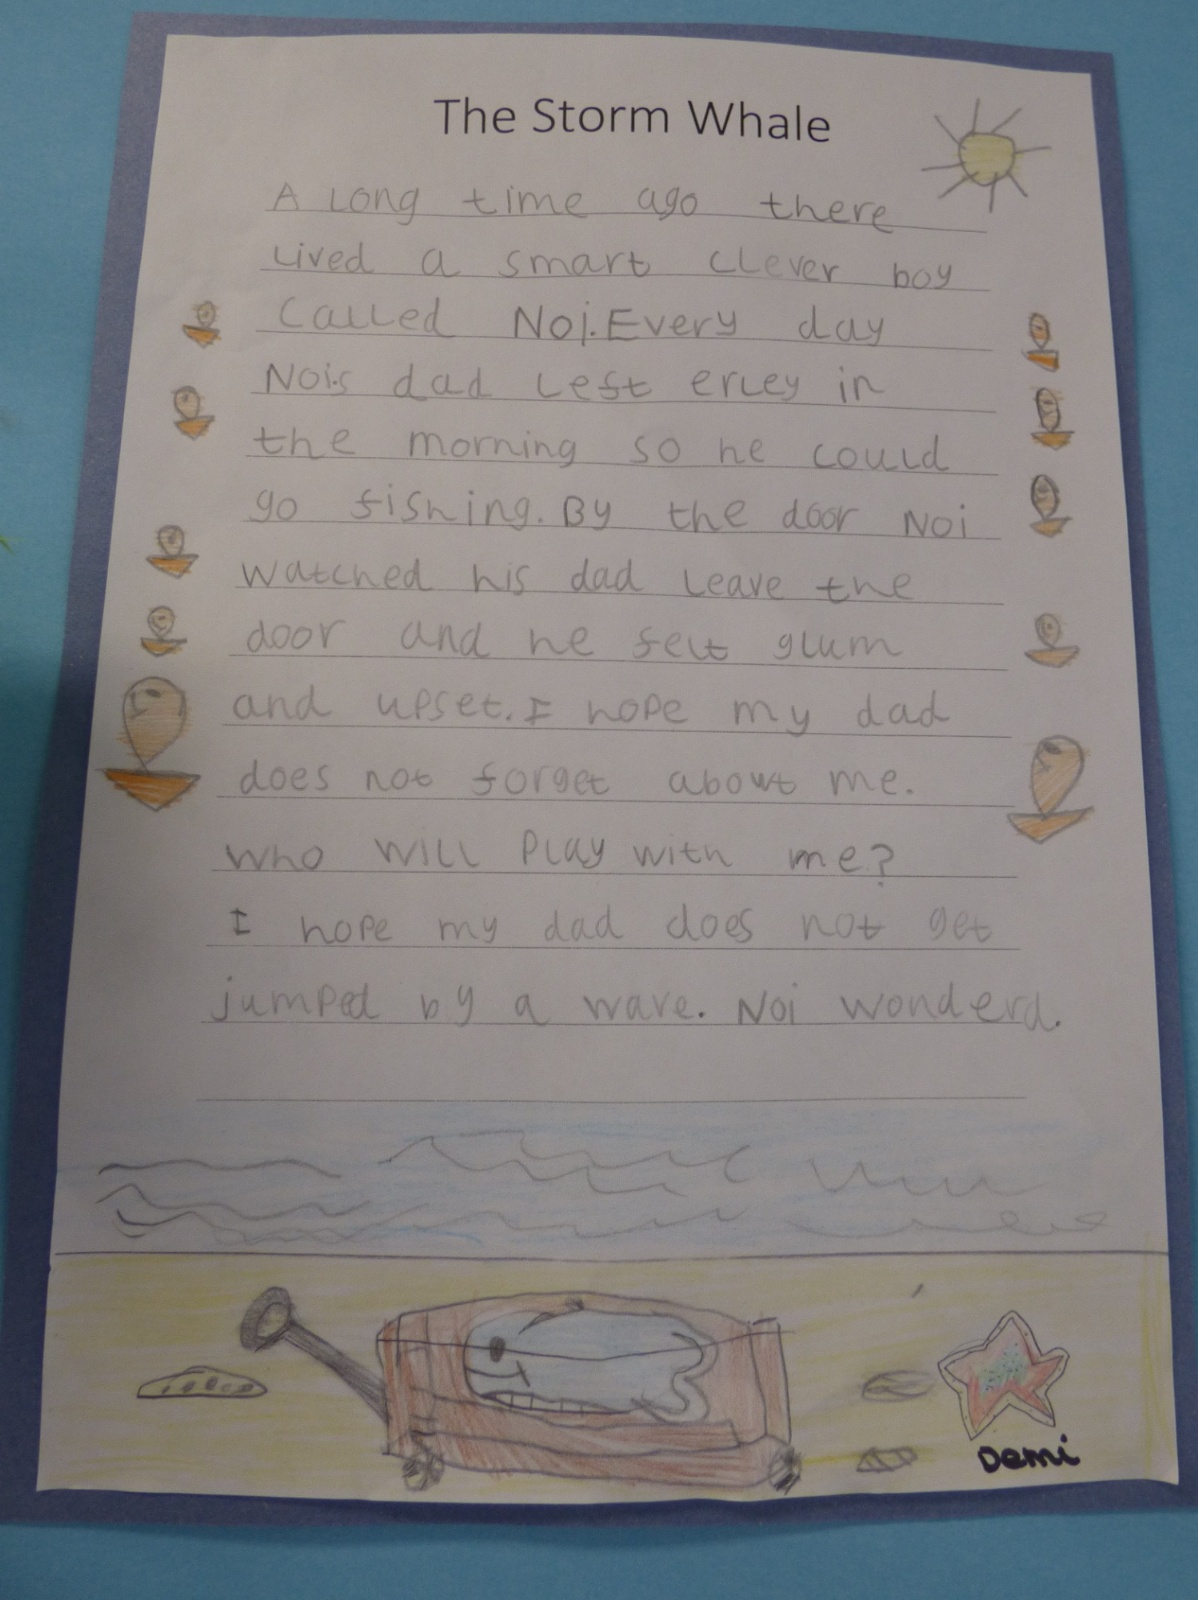 The Storm Whale
A Long time ago there
Lived a smart clever boy
Called Noi. Every day
Noi.s dad Left erley in
the morning so he could
go fishing. By the door Noi
watched his dad Leave the
door and he felt glum
and upset. I hope my dad
does not forget about me.
who will play with me?
I hope my dad does not get
jumped by a wave. Noi wonderd.
Demi